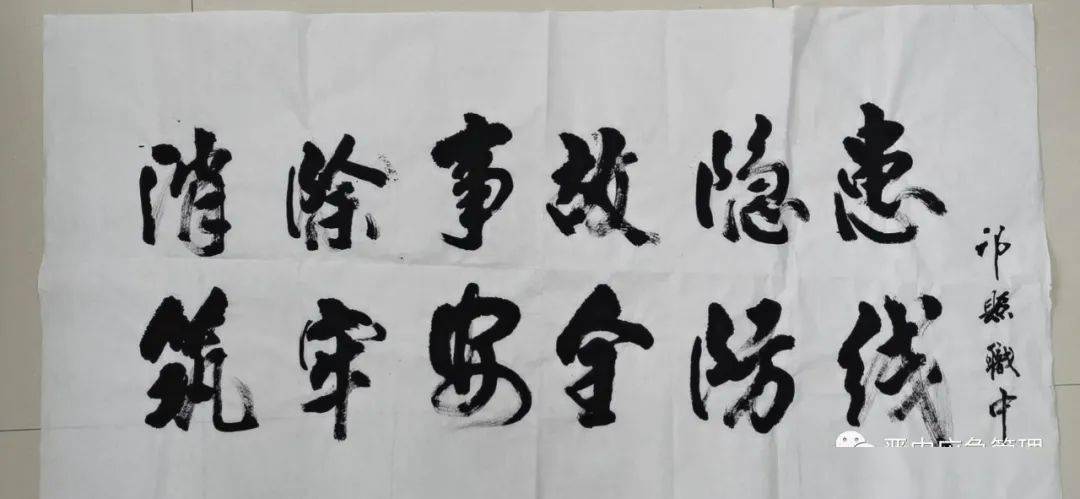 消除事故隐患
筑牢安全防线
祁縣職中
晋中应急管理